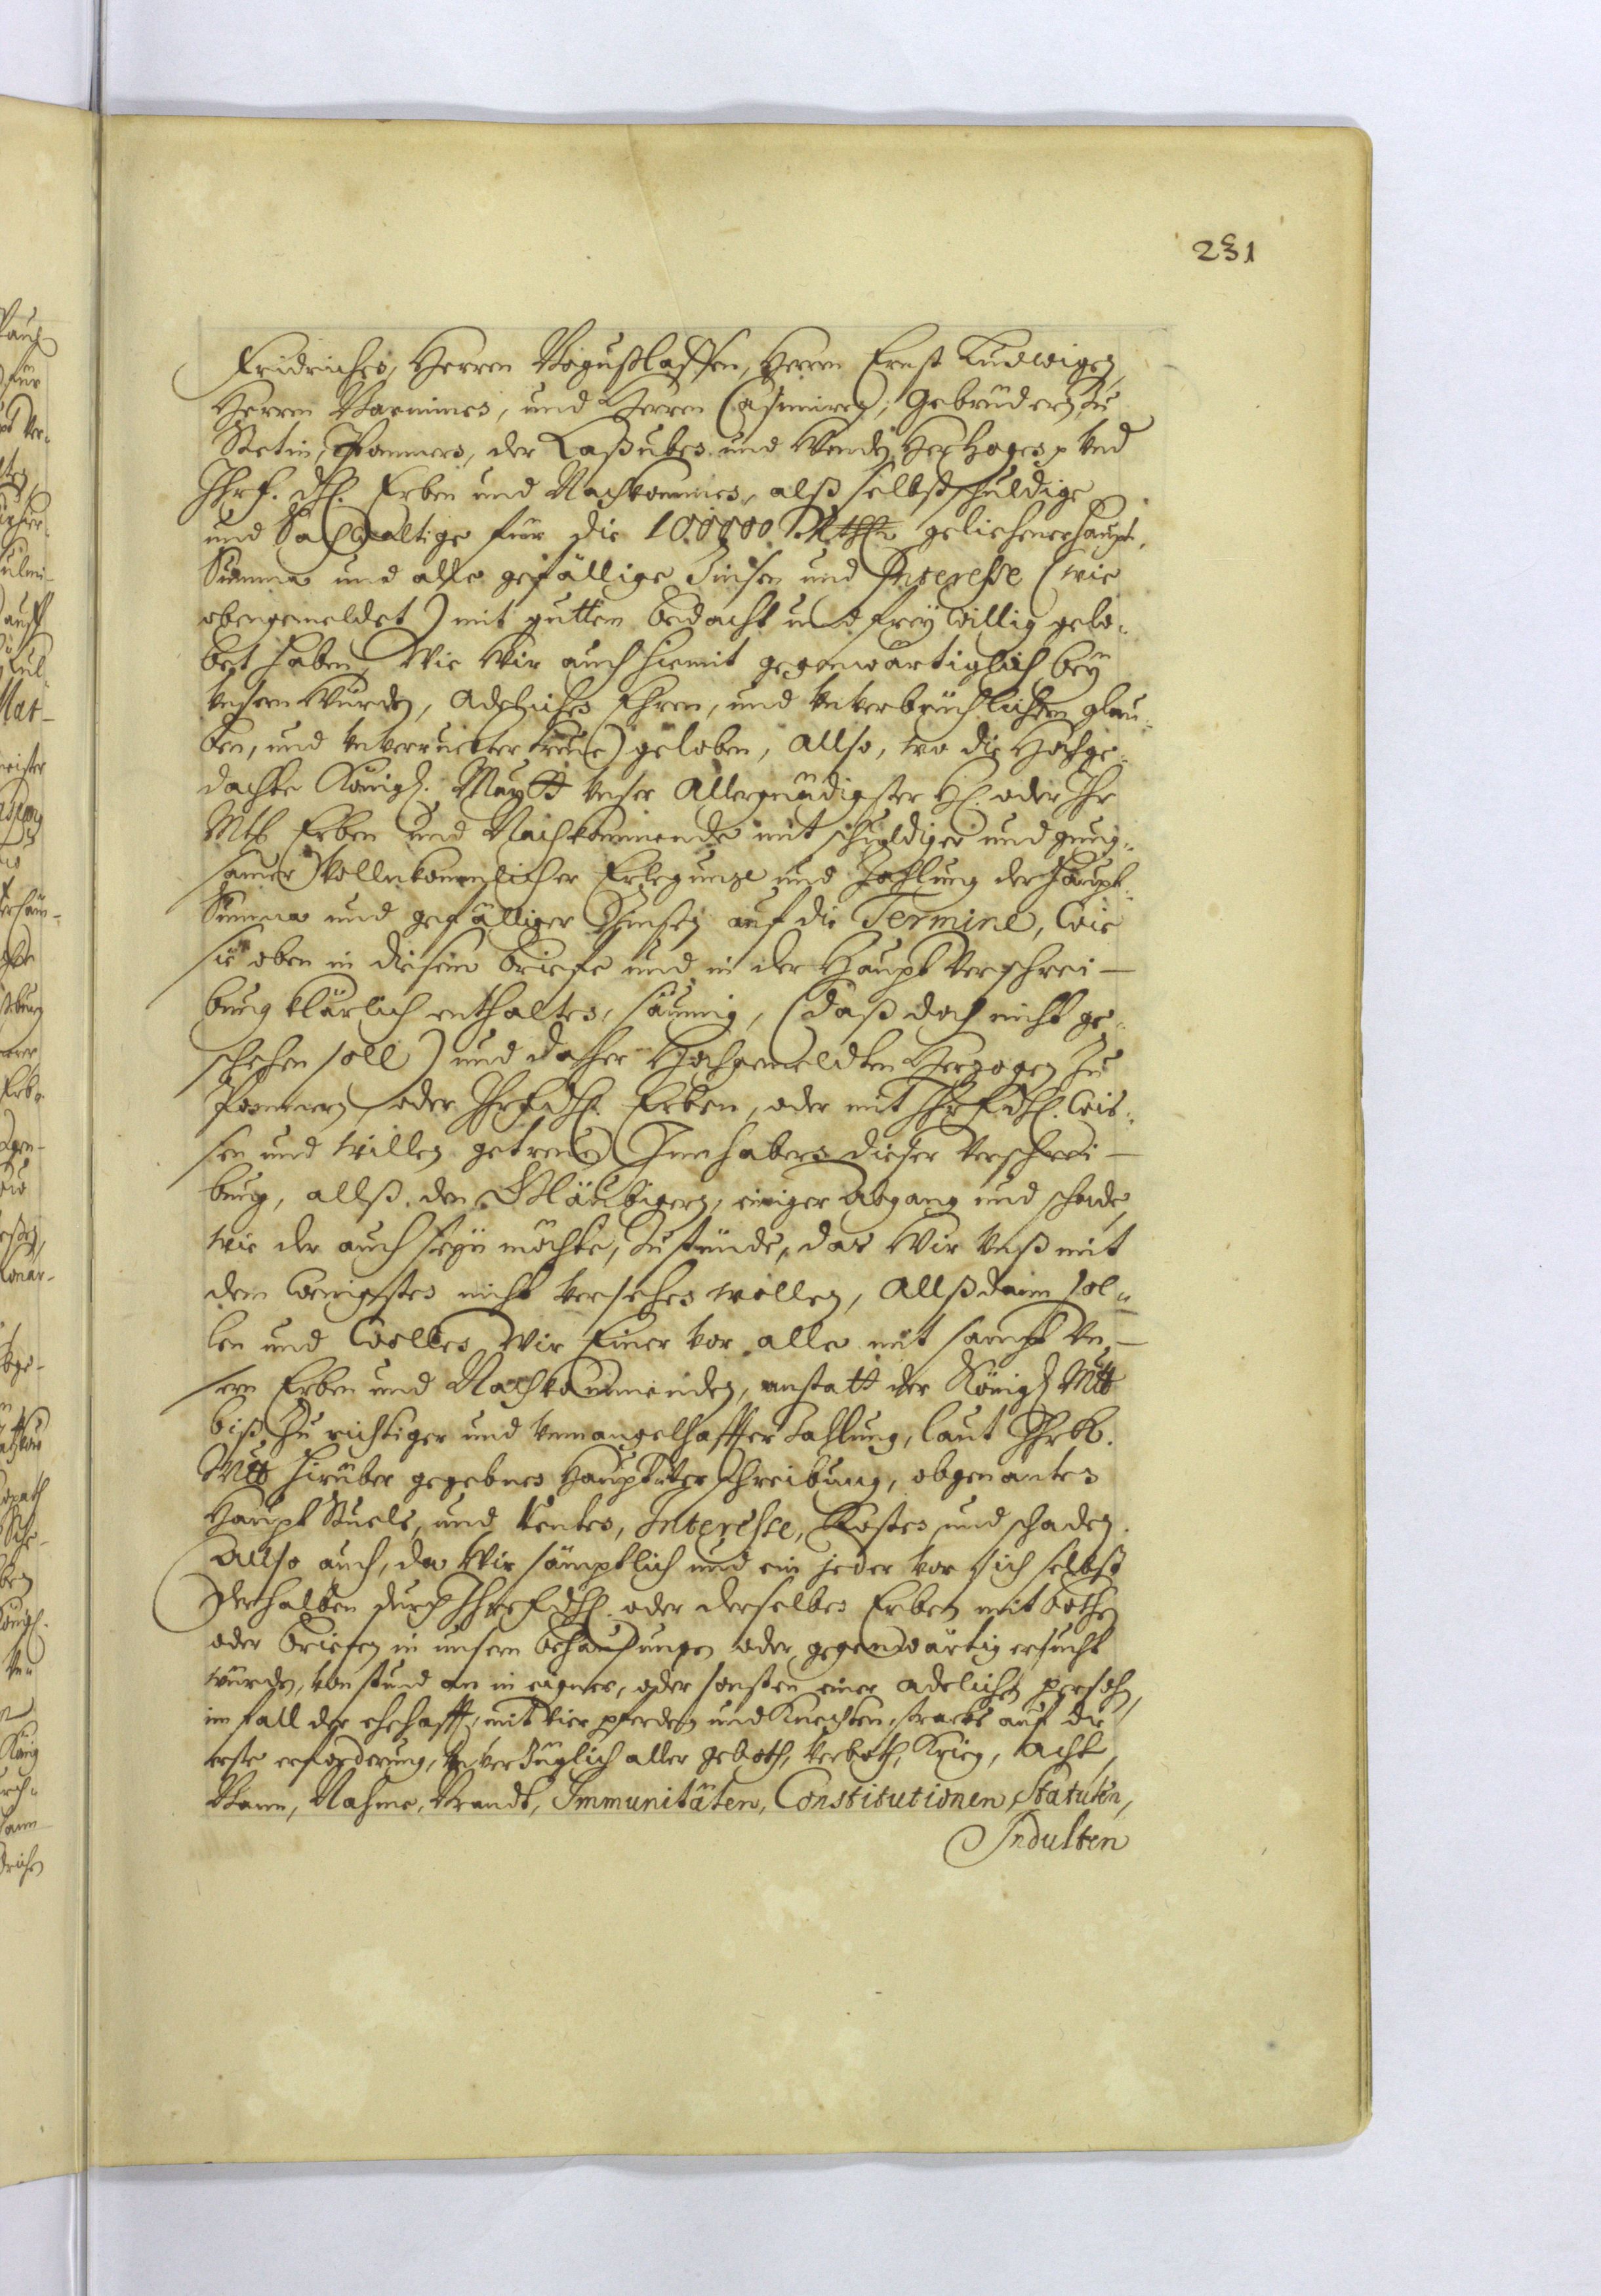 231
Fridrichen, Herren Bugußlaffen, Herren Ernst Ludwigen,
Herren Barnimes, und Herren Casimiren, Gebrüdern, Zu
Stetin, Pommern, der Caßuben und Wenden Hertzogen p Vnd
Ihrf. dhl. Erben und Nachkommen, alß selbst schuldige
und Sachwaltige für die 100000 Rthlr geliehener haupt
Summa und alle gefällige Zinsen und Interesse (wie
obengemeldet) mit guttem bedacht und freywillig gelo„
bet haben, Wie Wir auch hiemit gegenwärtiglich, bey
Vnsern Würden, Adelichen Ehren, und Vnverbrüchlichem glau„
ben, und Vnverruckter treue) geloben, Allso, wo die Hochge„
dachte Königl. Maytt Vnser Allergnädigster H. oder Ihr
Mtt Erben und Nachkommende mit schuldiger und gnug„
samer Vollnkommlicher Erlegunge und Zahlung der Haupt„
Summa und gefälliger Zinsen auf die Termine, Wie
sie oben in diesem briefe und in der Haupt Verschrei-
bung klärlich enthalten, säumig, (daß doch nicht ge„
schehen soll) und daher Hochgemeldten Herzogen Zu
Pommern oder Ihrfdhl. Erben, oder mit Ihrfdhl. Wis„
sen und Willen getreuen Innhabern dieser Verschrei-
bung, allß den Gläubigern, einiger Abgang und schade,
wie der auch seyn möchte, Zustünde, das Wir Vnß mit
dem Wenigsten nicht Versehen wollen, Allßdann sol„
len und Wollen Wir Einer vor alle mit sampt Vn-
sern Erben und Nachkommenden, anstatt der Königl Mtt
biß Zu richtiger und Vnmangelhaffter Zahlung, laut Ihr K.
Mtt hirüber gegebnen Haupt Verschreibung, obgenanten
Haupt Stuels, und Renten, Interesse, Kosten und schaden.
Allso auch, da Wir sämptlich und ein jeder vor sich selbst
Derhalben durch Ihrfdhl. oder derselben Erben mit bothen
oder briefen in unsern behausungen oder gegenwärtig ersucht
würden, von stund an in eigner, oder sonsten einer Adelichen person,
im fall der ehehafft, mit vier pferden und Knechten, stracks auf die
erste erforderung, Vnverzüglich aller geboth, Verboth, Krieg, Acht,
Bann, Nahme, Brandt, Immunitäten, Constitutionen, Statuten,
Indulten